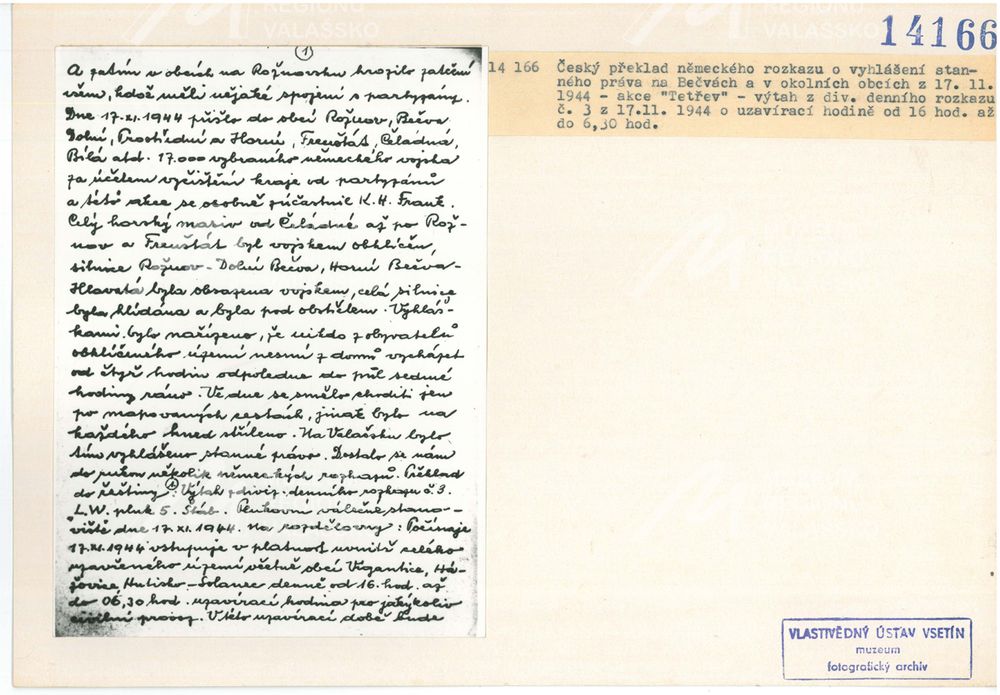 14166
(1)
A zatím v obcích na Rožnovsku hrozilo zatčení
všem, kdož měli nějaké spojení s partyzány.
Dne 17.XI.1944 přišlo do obcí Rožnov, Bečva
Dolní, Prostřední a Horní, Frenštát, Čeladná,
Bílá atd. 17.000 vybraného německého vojska
za účelem vyčištění kraje od partyzánů
a této akce se osobně zúčastnil K.H. Frank.
Celý horský masiv od Čeladné až po Rož-
nov a Frenštát byl vojskem obklíčen,
silnice Rožnov - Dolní Bečva, Horní Bečva -
Hlavatá byla obsazena vojskem, celá silnice
byla hlídána a byla pod obstřelem. Vyhláš-
kami bylo nařízeno, že nikdo z obyvatelů
obklíčeného území nesmí z domů vycházet
od čtyř hodin odpoledne do půl sedmé
hodiny ráno. Ve dne se smělo choditi jen
po mapovaných cestách, jinak bylo na
každého hned stříleno. Na Valašsku bylo
tím vyhlášeno stanné právo. Dostalo se nám
do rukou několik německých rozkazů. Překlad
do češtiny: Výtah z diviz. denního rozkazu č.3.
L.W. pluk 5. Štáb. Plukovní válečné stano-
viště dne 17.XI.1944. Na rozdělovny: Počínaje
17.XI.1944 vstupuje v platnost uvnitř celého
uzavřeného území včetně obcí Vigantice, Há-
žovice, Hutisko - Solanec denně od 16. hod. až
do 06,30 hod. uzavírací hodina pro jakýkoliv
civilní provoz. V této uzavírací době bude
14 166 Český překlad německého rozkazu o vyhlášení stan-
ného práva na Bečvách a v okolních obcích z 17. 11.
1944 - akce "Tetřev" - výtah z div. denního rozkazu
č. 3 z 17.11. 1944 o uzavírací hodině od 16 hod. až
do 6,30 hod.
VLASTIVĚDNÝ ÚSTAV VSETÍN
muzeum
fotografický archiv